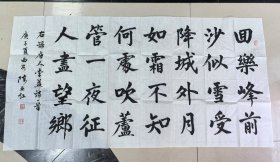 回樂峰前
沙似雪受
降城外月
如霜不知
何處吹蘆
管一夜征
人盡望鄉
右錄唐人李益詩
庚子夏